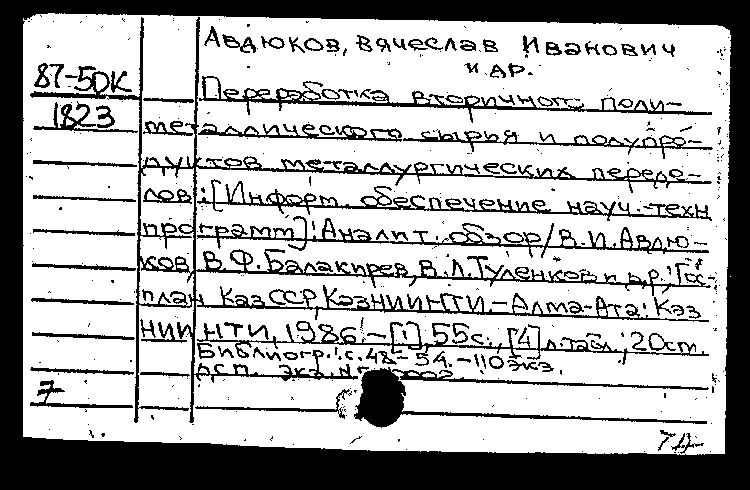 Авдюков, Вячеслав Иванович
и др.
87-5ДК
1823
Переработка вторичного поли-
металлического сырья и полупро-
дуктов металлургических переде-
лов:[Информ. обеспечение науч.-техн
программ]:Аналит. обзор/В.И.Авдю-
ков, В.Ф.Балакирев, В.Л.Туленков и др.; Гос-
план КазССР, КазНИИНТИ.-Алма-Ата: Каз
НИИНТИ, 1986.-[1], 55с., [4] л.табл.; 20см.
Библиогр.: с.48-54.-110экз.
ДСП. Экз.
7